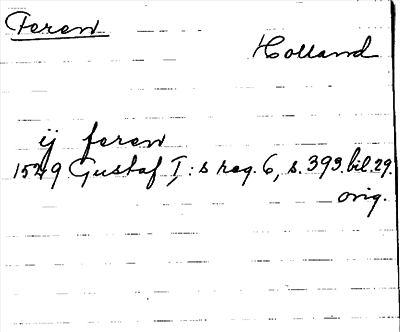 Feren
Holland
ij feren
1529 Gustaf I:s reg. 6, s. 393. bil. 29.
orig.